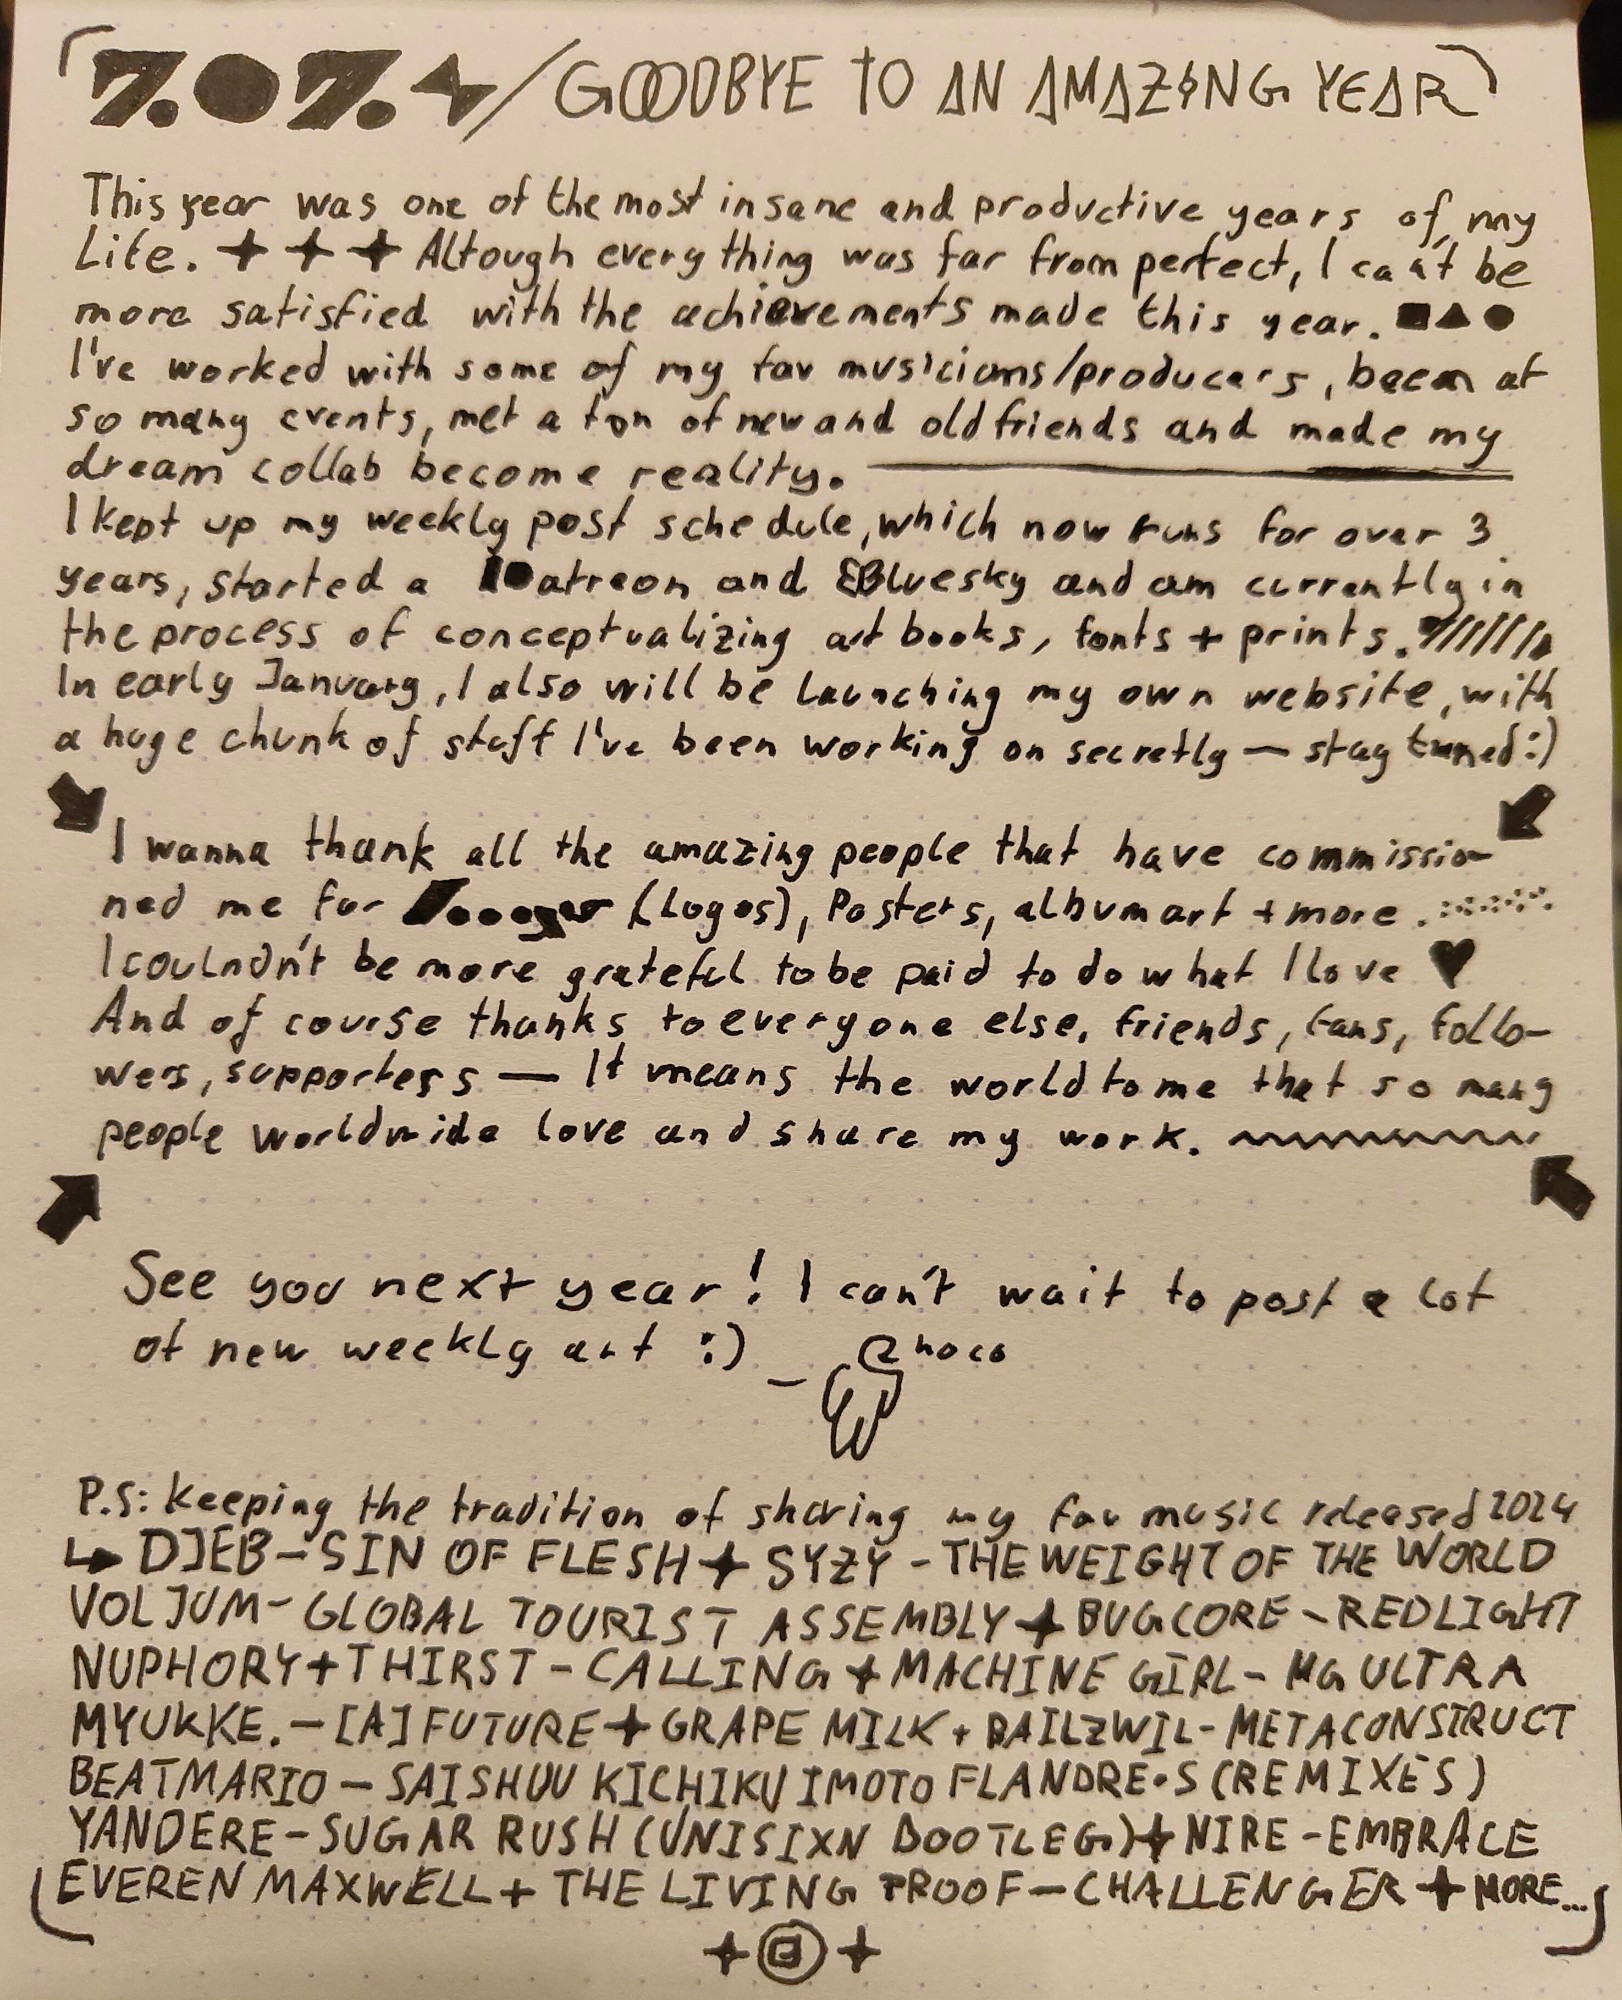 2024/GOODBYE TO AN AMAZING YEAR
This year was one of the most insane and productive years of my
Life. Altough everything was far from perfect, I can't be
more satisfied with the achievements made this year.
I've worked with some of my fav musicians/producers, been at
so many events, met a ton of new and old friends and made my
dream collab become reality.
I kept up my weekly post schedule, which now runs for over 3
years, started a Patreon and Bluesky and am currently in
the process of conceptualizing art books, fonts + prints.
In early January, I also will be launching my own website, with
a huge chunk of stuff I've been working on secretly — stay tuned :)
I wanna thank all the amazing people that have commissio-
ned me for (Logos), Posters, album art + more.
I couldn't be more grateful to be paid to do what I love ♥
And of course thanks to everyone else, friends, fans, follo-
wers, supporters — It means the world to me that so many
people worldwide love and share my work.
See you next year! I can't wait to post a lot
of new weekly art :) – Choco
P.S: Keeping the tradition of sharing my fav music released 2024
↳ DJEB - SIN OF FLESH ✦ SYZY - THE WEIGHT OF THE WORLD
VOLJUM - GLOBAL TOURIST ASSEMBLY ✦ BUGCORE - REDLIGHT
NUPHORY + THIRST - CALLING ✦ MACHINE GIRL - MG ULTRA
MYUKKE. - [A] FUTURE ✦ GRAPE MILK + RAILZWIL - METACONSTRUCT
BEATMARIO - SAISHUU KICHIKU IMOTO FLANDRE•S (REMIXES)
YANDERE - SUGAR RUSH (UNISIXN BOOTLEG) ✦ NIRE - EMBRACE
EVEREN MAXWELL + THE LIVING PROOF - CHALLENGER ✦ MORE...